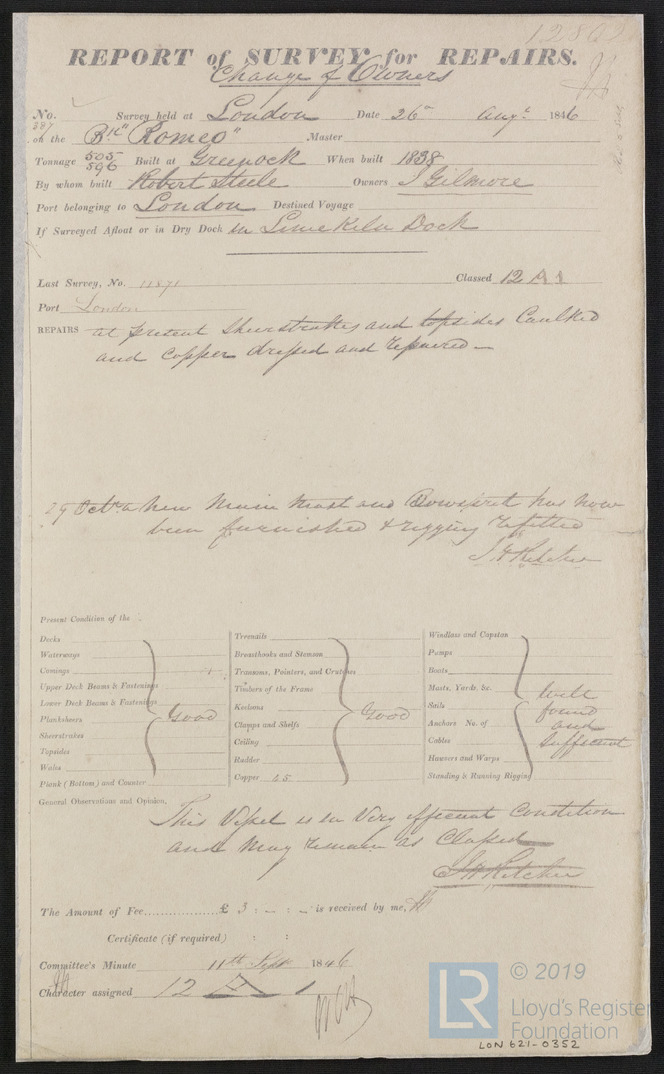 REPORT of SURVEY for REPAIRS.
Change of Owners
No. 387 Survey held at London Date 26th Augt 1846
on the Bk "Romeo" Master
Tonnage 505 596 Built at Greenock When built 1838
By whom built Robert Steele Owners J Gilmore
Port belonging to London Destined Voyage
If Surveyed Afloat or in Dry Dock in Lime Kiln Dock
Last Survey, No. 11871 Classed 12 A 1
Port London
REPAIRS at present Sheerstrakes and topsides Caulked
and Copper dressed and repaired —
29 Octr a New Main Mast and Bowsprit has now
been furnished & rigging refitted
Present Condition of the
Decks
Waterways
Comings
Upper Deck Beams & Fastenings
Lower Deck Beams & Fastenings
Planksheers
Sheerstrakes
Topsides
Wales
Plank (Bottom) and Counter
Good
Treenails
Breasthooks and Stemson
Transoms, Pointers, and Crutches
Timbers of the Frame
Keelsons
Clamps and Shelfs
Ceiling
Rudder
Copper 45
Good
Windlass and Capstan
Pumps
Boats
Masts, Yards, &c.
Sails
Anchors No. of
Cables
Hawsers and Warps
Standing & Running Rigging
Well
found
and
Sufficient
General Observations and Opinion,
This Vessel is in Very efficient Condition
and May remain as Classed
The Amount of Fee £ 3 : – : – is received by me,
Certificate (if required) : :
Committee's Minute 11th Sept 1846
Character assigned 12 A 1
LR
© 2019
Lloyd's Register
Foundation
LON 621-0352